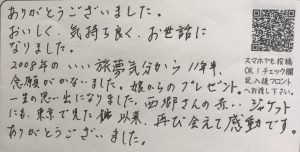 ありがとうございました。
おいしく、気持ち良く、お世話に
なりました。
2008年のいい旅夢気分から11年半、
念願がかないました。娘からのプレゼント。
一生の思い出になりました。西郷さんの赤いジャケット
にも、東京で見た 以来、再び会えて感動です。
ありがとうございました。
スマホでも投稿
OK!チェック欄
記入後フロント
へお渡し下さい。